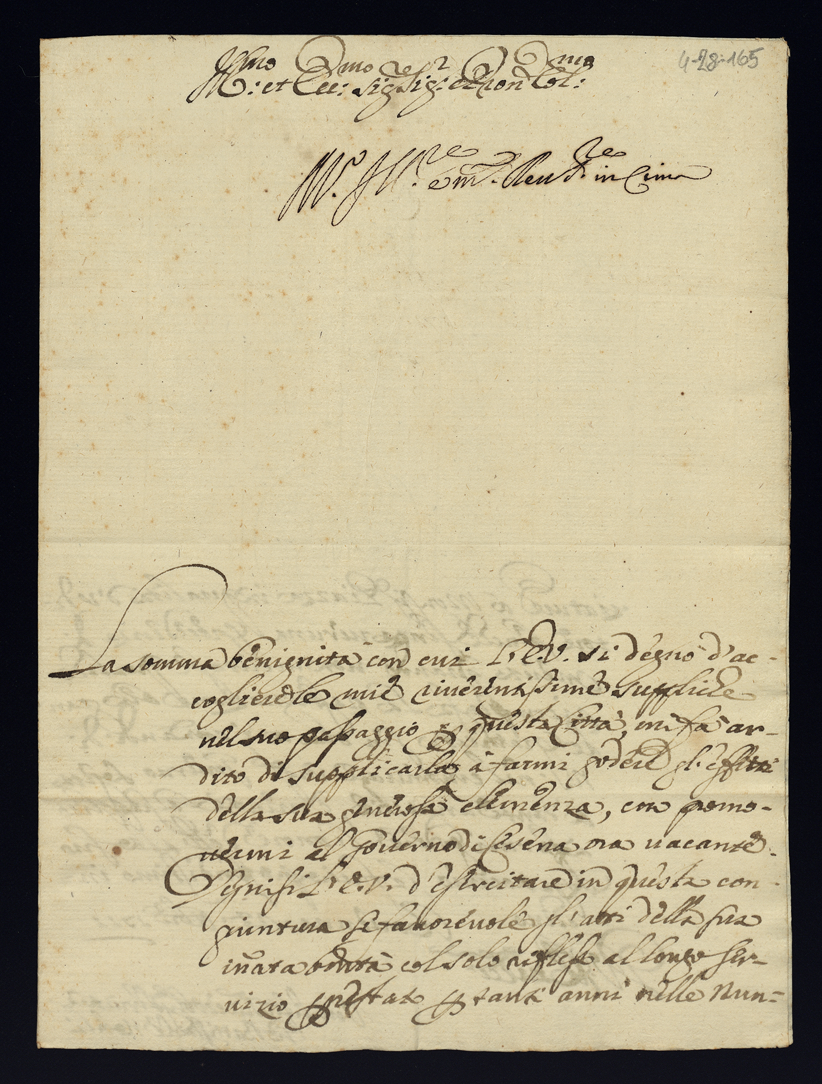 4-28-165
Ill.mo et Ecc.mo Sig.re Sig.r et Pron Col.mo
La somma benignità con cui l'E.V. si degnò d'ac-
cogliere le mie riverentissime suppliche
nel suo passaggio p questa Città, mi fà ar-
dito di supplicarla à farmi godere gl'effetti
della sua generosa clemenza, con promo-
vermi al Governo di Cesena ora vacante.
Degnisi l'E.V. d'esercitare in questa con-
giuntura sì favorevole gl'atti della sua
innata bontà col solo riflesso al longo ser-
vizio prestato p tanti anni nelle Nun-